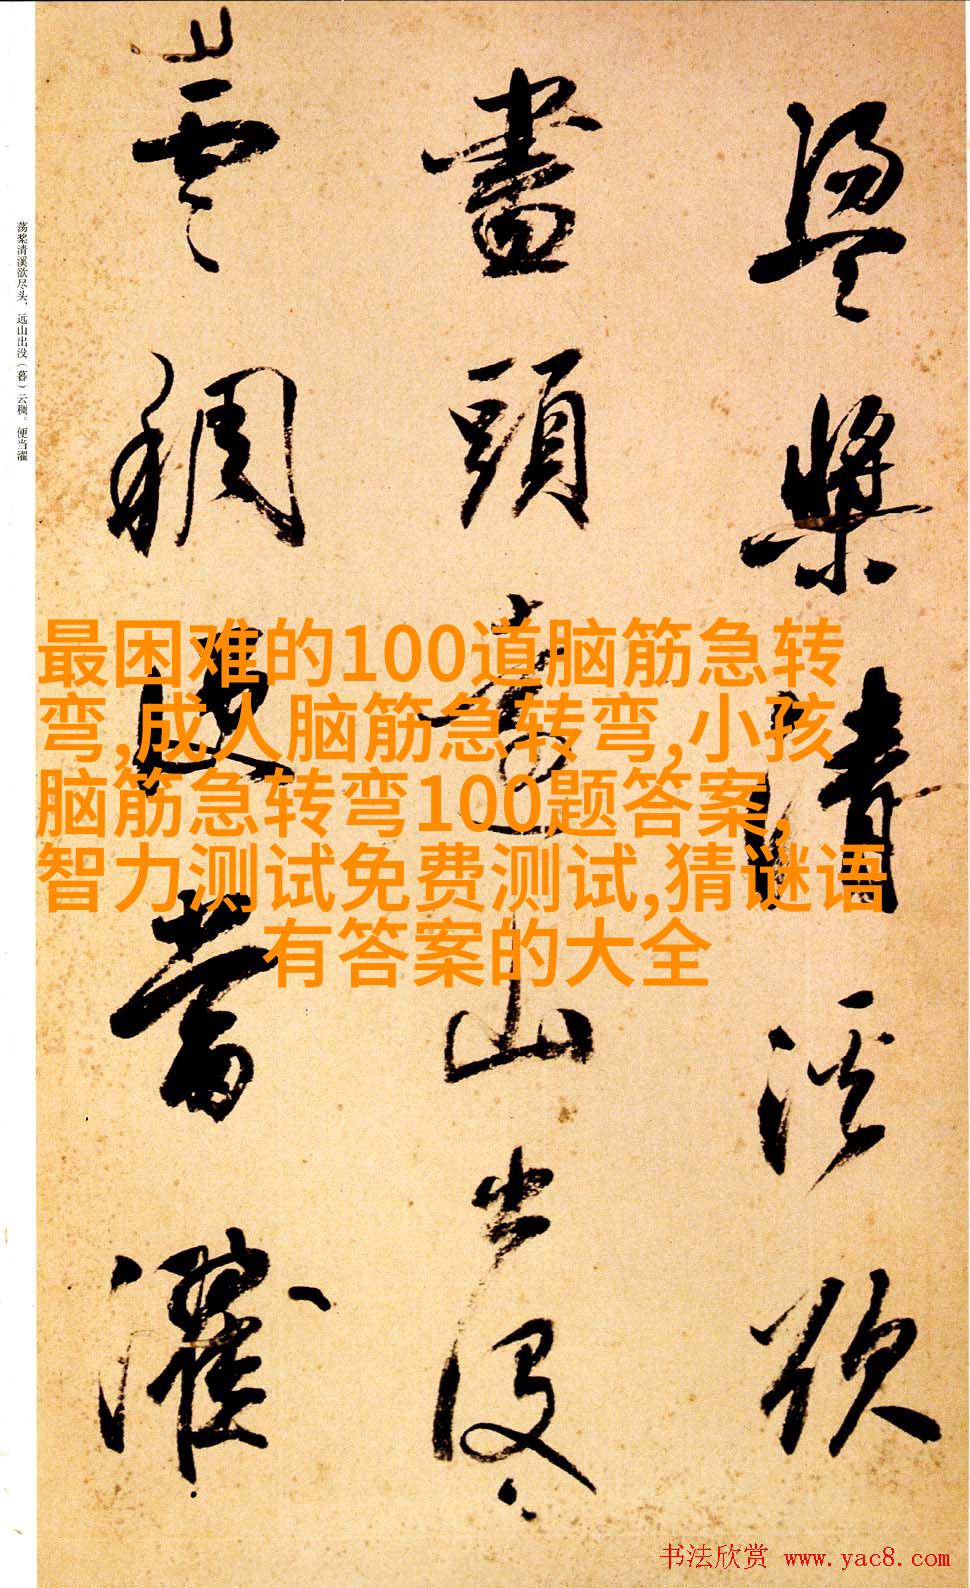 盪槳清溪欲
盡頭遠山出没
雲稠便當濯
荡桨清溪欲尽头，远山出没（暮）云稠。便当濯
最困难的100道脑筋急转
弯,成人脑筋急转弯,小孩
脑筋急转弯100题答案,
智力测试免费测试,猜谜语
有答案的大全
书法欣赏 www.yac8.com